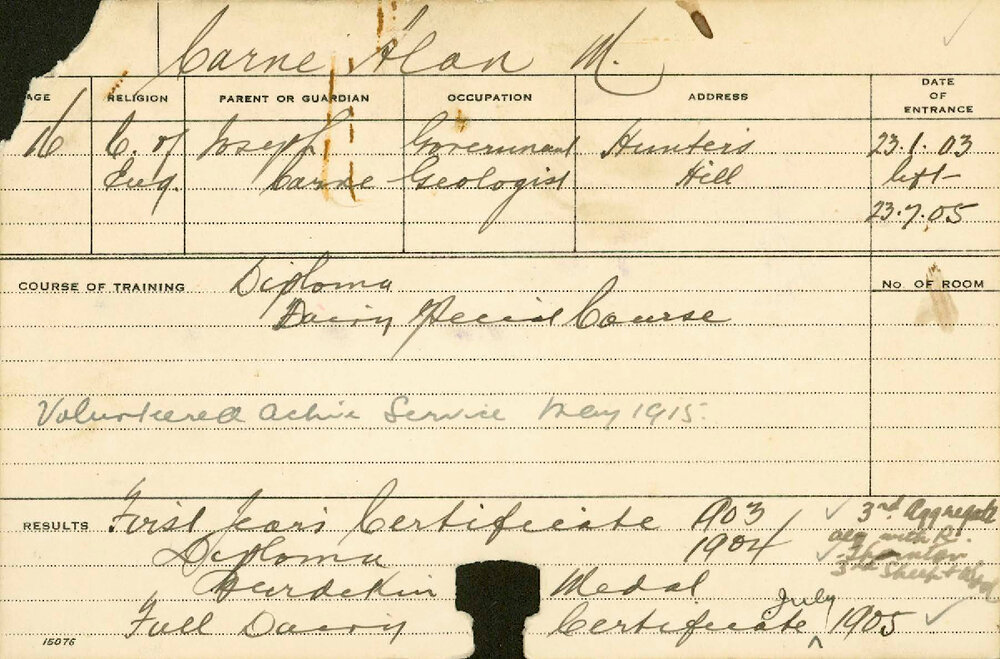 Carne Alan M.
AGE RELIGION PARENT OR GUARDIAN OCCUPATION ADDRESS DATE OF ENTRANCE
16 C. of Joseph Government Hunter's 23.1.03
Eng. Carne Geologist Hill left
23.7.05
COURSE OF TRAINING Diploma No. OF ROOM
Dairy Special Course
Volunteered Active Service May 1915.
RESULTS First Years Certificate 1903 3rd Aggregate
Diploma 1904 with R.
Thornton
Burdekin Medal 3rd Sheep & Wool
July
Full Dairy Certificate ^ 1905
15076